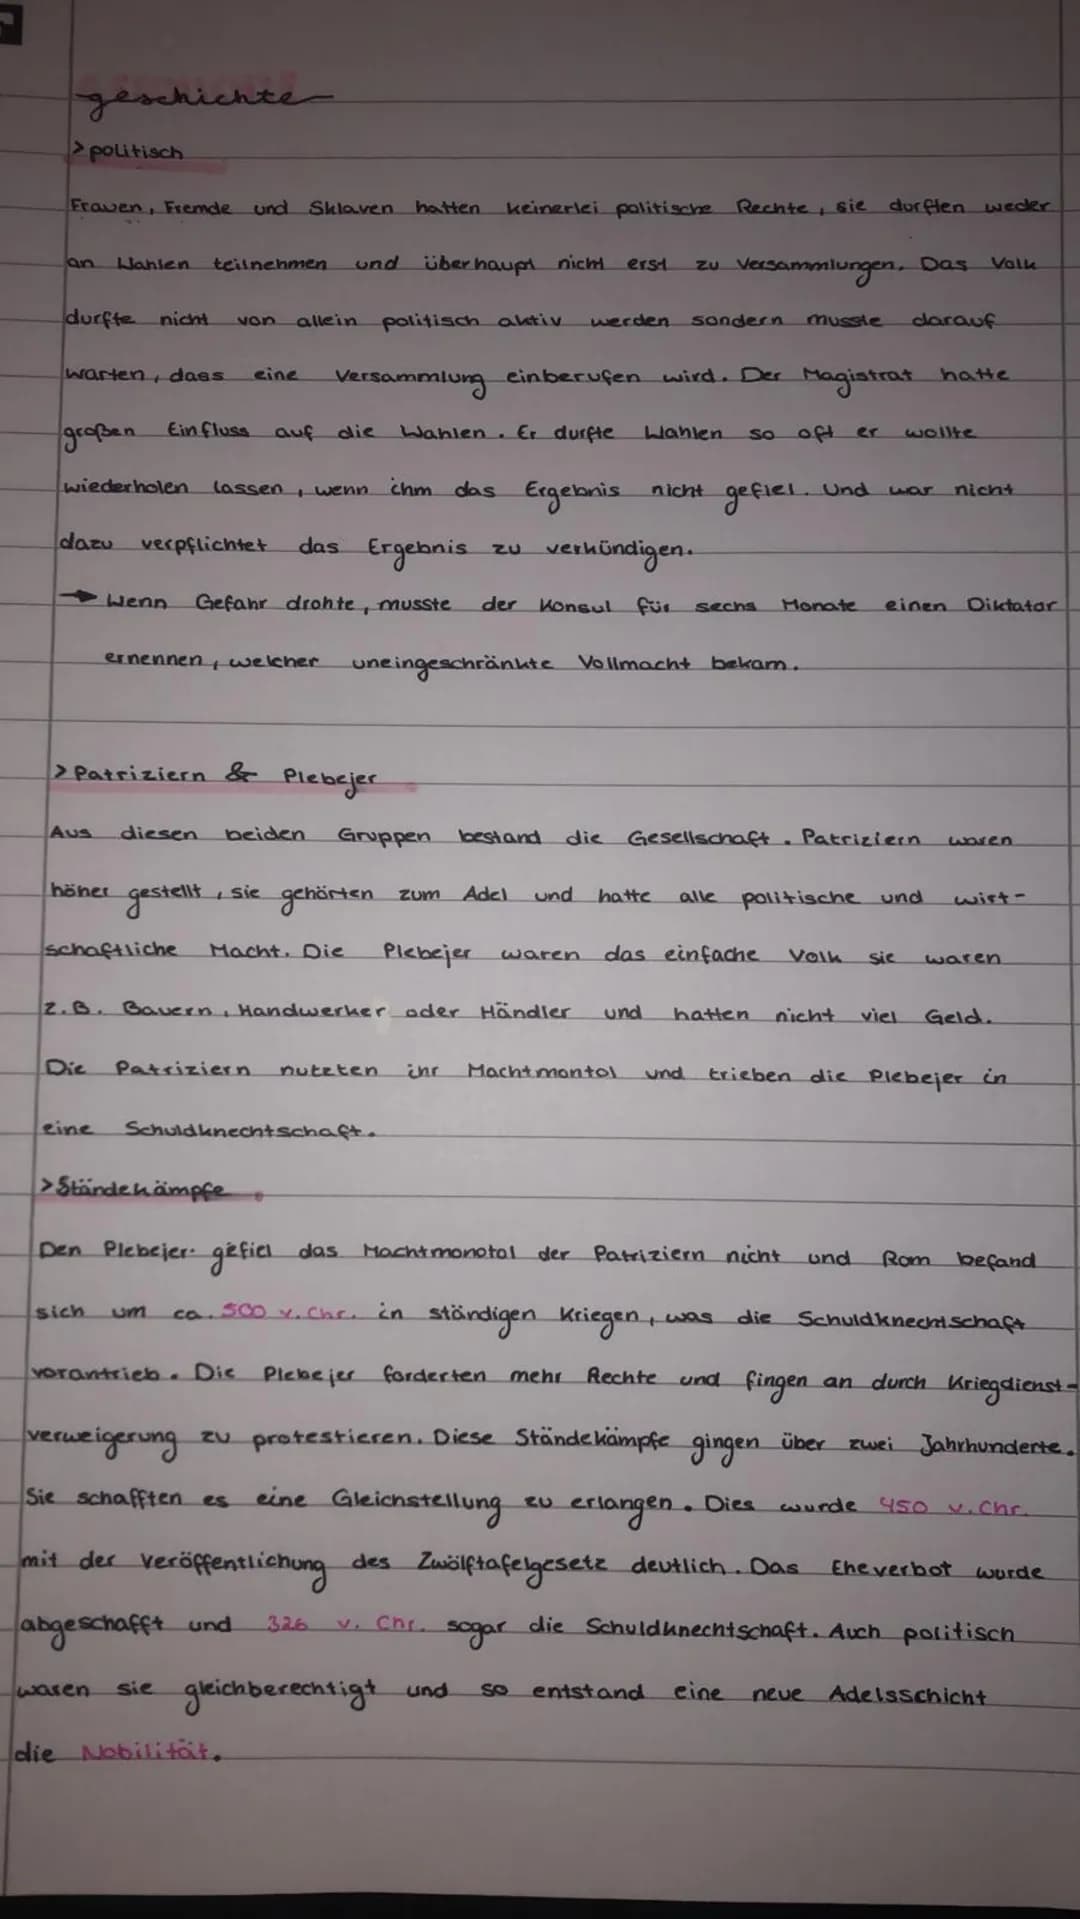 geschichte
> politisch
Frauen, Fremde und Sklaven hatten keinerlei politische Rechte, sie durften weder
an Wahlen teilnehmen und überhaupt nicht erst zu Versammlungen. Das Volk
durfte nicht von allein politisch aktiv werden sondern musste darauf
warten, dass eine Versammlung einberufen wird. Der Magistrat hatte
großen Einfluss auf die Wahlen. Er durfte Wahlen so oft er wollte
wiederholen lassen, wenn ihm das Ergebnis nicht gefiel. Und war nicht
dazu verpflichtet das Ergebnis zu verkündigen.
→ Wenn Gefahr drohte, musste der Konsul für sechs Monate einen Diktator
ernennen, welcher uneingeschränkte Vollmacht bekam.
> Patriziern & Plebejer
Aus diesen beiden Gruppen bestand die Gesellschaft. Patriziern waren
höher gestellt, sie gehörten zum Adel und hatte alle politische und wirt-
schaftliche Macht. Die Plebejer waren das einfache Volk sie waren
z.B. Bauern, Handwerker oder Händler und hatten nicht viel Geld.
Die Patriziern nutzten ihr Machtmontol und trieben die Plebejer in
eine Schuldknechtschaft.
> Ständekämpfe
Den Plebejer gefiel das Machtmonotol der Patriziern nicht und Rom befand
sich um ca. 500 v. Chr. in ständigen Kriegen, was die Schuldknechtschaft
vorantrieb. Die Plebejer forderten mehr Rechte und fingen an durch Kriegdienst-
verweigerung zu protestieren. Diese Ständekämpfe gingen über zwei Jahrhunderte.
Sie schafften es eine Gleichstellung zu erlangen. Dies wurde 450 v. Chr.
mit der Veröffentlichung des Zwölftafelgesetz deutlich. Das Eheverbot wurde
abgeschafft und 326 v. Chr. sogar die Schuldknechtschaft. Auch politisch
waren sie gleichberechtigt und so entstand eine neue Adelsschicht
die Nobilität.